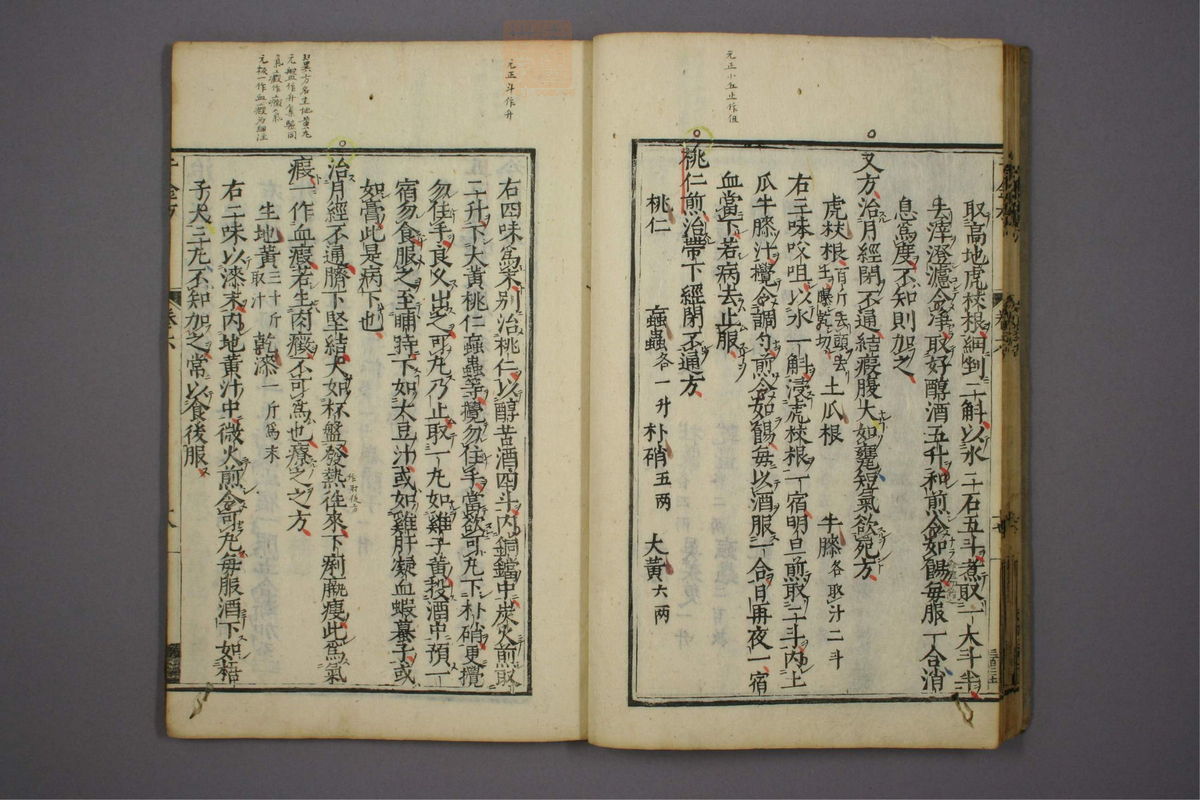 取高地虎杖根細剉二斛以水二石五斗煮取一大斗半
去滓澄濾令淨取好醇酒五升和煎令如餳每服一合消
息爲度不知則加之
又方治月經閉不通結瘕腹大如甕短氣欲死方
虎杖根百斤去頭去土曝乾切 土瓜根 牛膝各取汁二斗
右三味㕮咀以水一斛浸虎杖根一宿明旦煎取二斗內土
瓜牛膝汁攪令調勻煎令如餳每以酒服一合日再夜一宿
血當下若病去止服
桃仁煎治帶下經閉不通方
桃仁 䗪蟲各一升 朴硝五兩 大黃六兩
右四味爲末別治桃仁以醇苦酒四斗內銅鐺中炭火煎取
二升下大黃桃仁䗪蟲等攪勿住手當欲可丸下朴硝更攪
勿住手良久出之可丸乃止取一丸如雞子黃投酒中預一
宿勿食服之至晡時下如大豆汁或如雞肝凝血蝦蟇子或
如膏此是病下也
治月經不通臍下堅結大如杯盤發熱往來下痢羸瘦此爲氣
瘕一作血瘕若生肉癥不可爲也療之之方
生地黃三十斤取汁 乾漆一斤爲末
右二味以漆末內地黃汁中微火煎令可丸每服酒下如梧
子大三丸不知加之常以食後服
元正斗作升